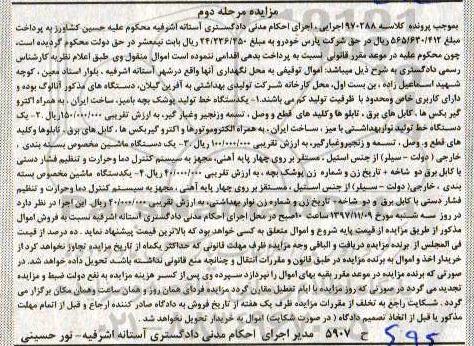 مزایده مرحله دوم
بموجب پرونده کلاسه ۹۷۰۲۸۸ اجرایی، اجرای احکام مدنی دادگستری آستانه اشرفیه محکوم علیه حسین کشاورز به پرداخت
مبلغ ۵۶۵/۶۳۰/۴۱۲ ریال در حق شرکت پارس خودرو به مبلغ ۲۴/۲۳۶/۴۵۰ ریال بابت نیمعشر در حق دولت محکوم گردیده است،
چون محکوم علیه در موعد مقرر قانونی نسبت به پرداخت بدهی اقدامی ننموده است اموال منقول وی طبق اعلام نظریه کارشناس
رسمی دادگستری به شرح ذیل میباشد: اموال توقیفی به محل نگهداری آنها واقع درشهر آستانه اشرفیه ، بلوار استاد معین ، کوچه
شهید اسماعیل زاده ، بن بست اول، محل کارخانه شرکت تولیدی بهداشتی به آفرین گیلان، دستگاه های مذکور آنالوگ بوده و
دارای کاربری خاص ومحدود با ظرفیت تولید کم می باشند.۱- یکدستگاه خط تولید پوشک بچه بامیز، ساخت ایران ، به همراه اکترو
گیر بکس ها ، کابل های برق ، تابلو ها وکلید های قطع و وصل ، تسمه وزنجیر وغبار گیر، به ارزش تقریبی ۱۵۰/۰۰۰/۰۰۰ ریال.۲- یک
دستگاه خط تولید نواربهداشتی با میز ، ساخت ایران ، به همراه الکتروموتورها و اکترو گیربکس ها ، کابل های برق ، تابلوها وکلید
های قطع و، وصل ، تسمه و زنجیروغبارگیر، به ارزش تقریبی ۱۰۰/۰۰۰/۰۰۰ ریال.۳- یک دستگاه ماشین مخصوص بسته بندی ،
خارجی ( دولت – سیلر) از جنس استیل ، مستقر بر روی چهار پایه آهنی، مجهز به سیستم کنترل دما وحرارت و تنظیم فشار دستی
با کابل برق دو شاخه + تاریخ زن و شماره زن پوشک بچه ، به ارزش تقریبی ۴۰/۰۰۰/۰۰۰ ریال ۴- یکدستگاه ماشین مخصوص بسته
بندی ، خارجی( دولت – سیلر) از جنس استیل ، مستقر بر روی چهار پایه آهنی ، مجهز به سیستم کنترل دما وحرارت و تنظیم
فشار دستی با کابل برق و دو شاخه+ تاریخ زن و شماره زن نوار بهداشتی، به ارزش تقریبی ۲۰/۰۰۰/۰۰۰ ریال. این اجرا در نظر دارد
در روز سه شنبه مورخ ۱۳۹۷/۱۱/۰۹ ساعت ۱۰صبح در محل اجرای احکام مدنی دادگستری آستانه اشرفیه نسبت به فروش اموال
مذکور از طریق مزایده از قیمت پایه شروع و اموال متعلق به کسی خواهد بود که بالاترین قیمت پیشنهاد نماید . ده درصد از قیمت
فی المجلس از برنده مزایده دریافت و الباقی وجه مزایده ظرف مهلت قانونی که حداکثر یکماه از تاریخ مزایده تجاوز نخواهد کرد از
خریدار اخذ و اموال به برنده مزایده در طبق قانون و مقررات انتقال و چنانچه منع قانونی نداشته باشد، تحویل داده خواهد شد. در
صورتی که برنده مزایده در موعد مقرر بقیه بهای اموال را نپردازد سپرده وی پس از کسر هزینه مزایده به نفع دولت ضبط و مزایده
تجدید می گردد در صورتی که روز مزایده با ایام تعطیل مقارن گردد مزایده فردای همان روز و همان ساعت وهمان مکان برگزار می
گردد . شکایت راجع به تخلف از مقررات مزایده ظرف یک هفته از تاریخ فروش به دادگاه صادر کننده ارجاع و قبل از اتمام مهلت
مذکور یا قبل از اتخاذ تصمیم دادگاه ( در صورت شکایت) اموال به خریدار تحویل نخواهد شد.
ج ۵۹۰۷ مدیر اجرای احکام مدنی دادگستری آستانه اشرفیه – نور حسینی
۵۹۵